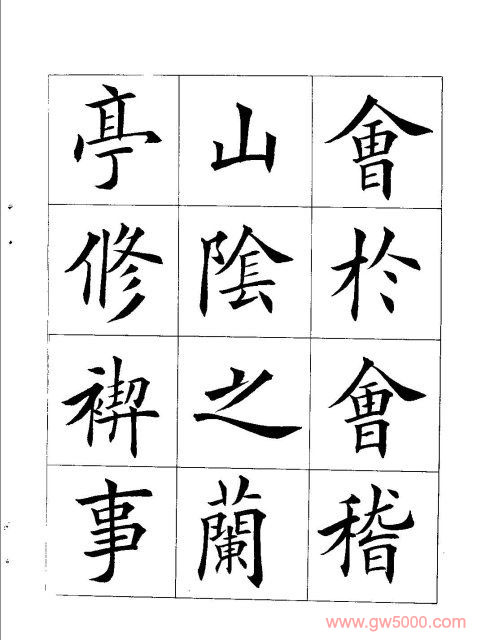 會於會稽
山陰之蘭
亭修禊事
www.gw5000.com